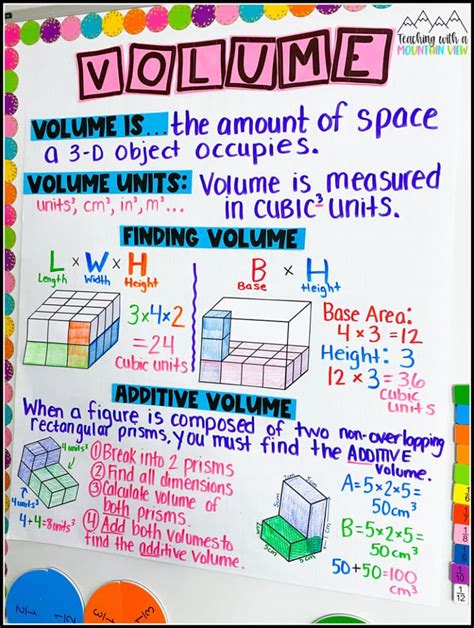 Teaching with a
MOUNTAIN VIEW
VOLUME
VOLUME IS... the amount of space
a 3-D object occupies.
VOLUME UNITS: Volume is measured
units³, cm³, in³, m³... in CUBIC³ units.
FINDING VOLUME
L x W x H
Length Width Height
3x4x2
= 24
cubic units
B x H
Base Height
Base Area:
4 x 3 = 12
Height: 3
12 x 3 = 36
cubic
units
ADDITIVE VOLUME
When a figure is composed of two non-overlapping
rectangular prisms, you must find the ADDITIVE
volume.
4 units³
4 units³
4+4=8 units³
① Break into 2 prisms
② Find all dimensions
③ Calculate volume of
both prisms.
④ Add both volumes to
find the additive volume.
5cm
5cm
A=5x2x5=
50cm³
B=5x2x5=
50cm³
50+50=100
cm³